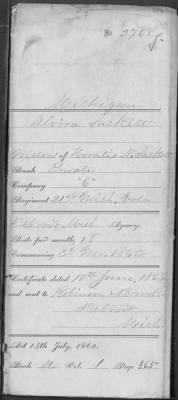 No. 2765
Michigan
Alvira Sackett
Widow of Horatio N. Sackett
Rank Private
Company "C"
Regiment 21st Mich. Vols
Detroit Mich Agency.
Rate per month, $8
Commencing 3d Nov. 1862
Certificate dated 10th June, 1863
and sent to Robinson &
Detroit
Mich
Act 14th July, 1862.
Book A Vol. 1 Page 265